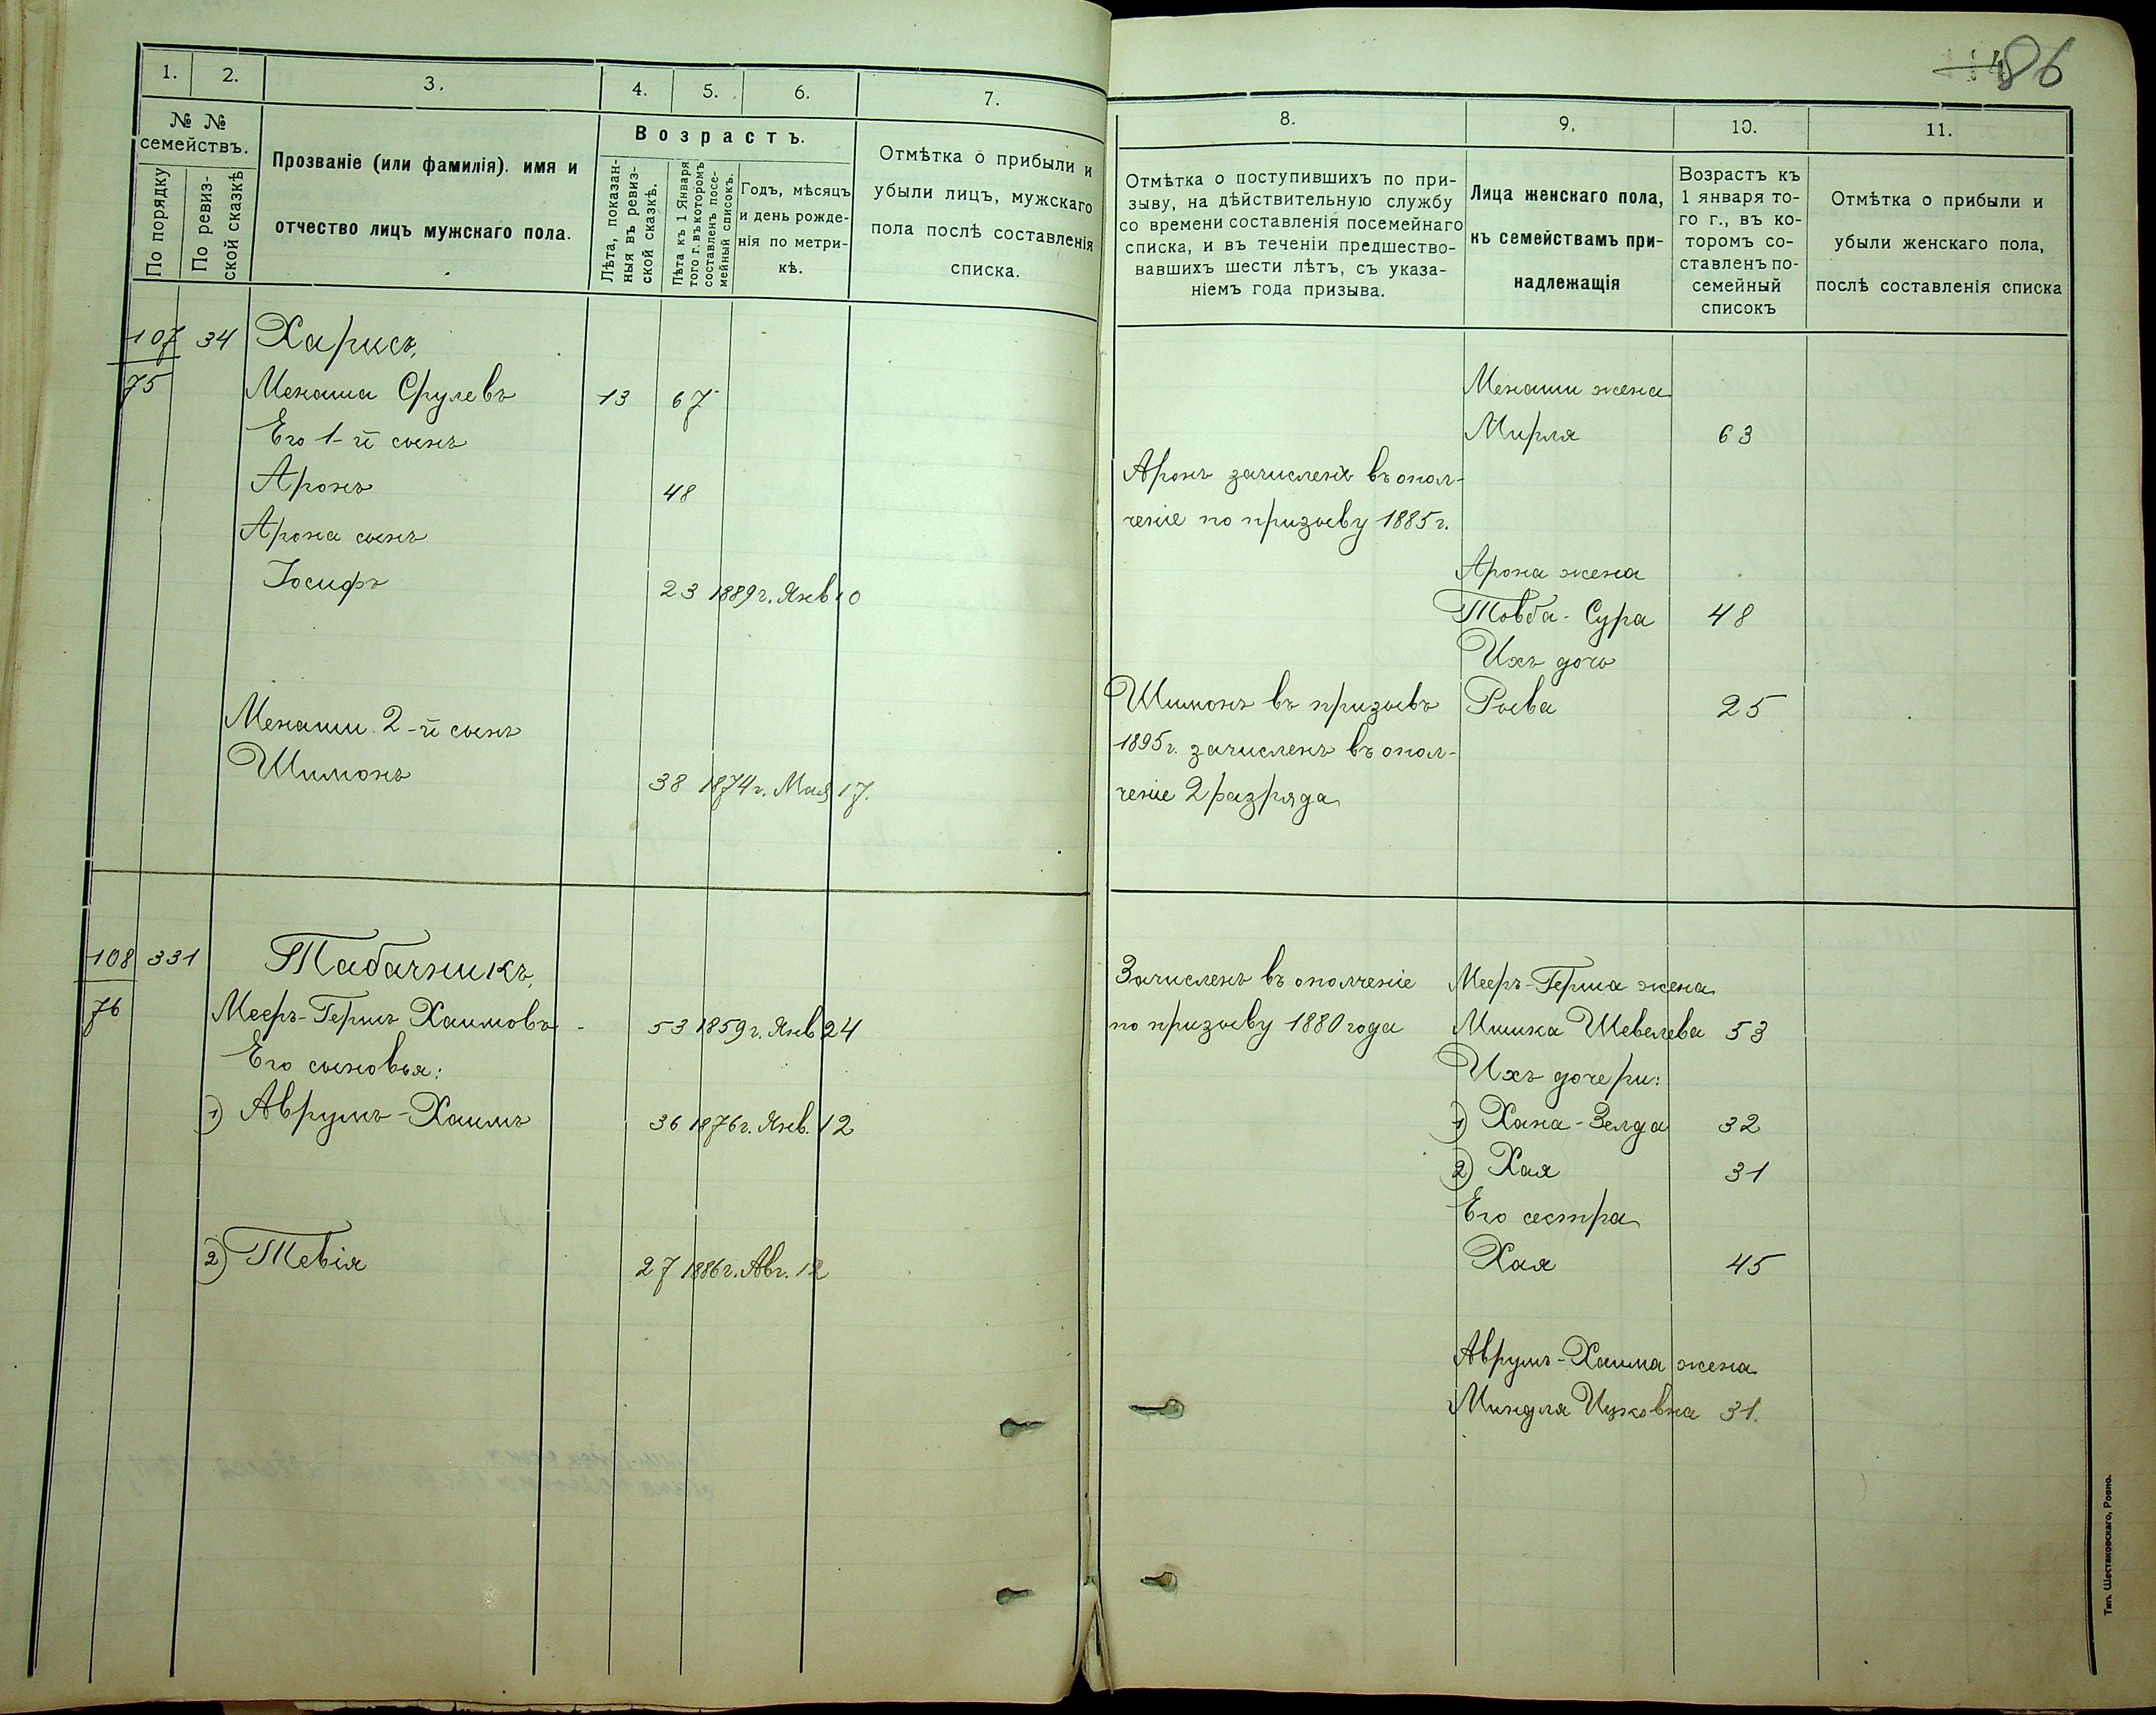 86
1.
2.
3.
4.
5.
6.
7.
№ №
семействъ.
По порядку
По ревиз-
ской сказкѣ
Прозваніе (или фамилія). имя и
отчество лицъ мужскаго пола.
Возрастъ.
Лѣта, показан-
ныя въ ревиз-
ской сказкѣ.
Лѣта къ 1 Января
того г. въ которомъ
составленъ посе-
мейный списокъ.
Годъ, мѣсяцъ
и день рожде-
нія по метри-
кѣ.
Отмѣтка о прибыли и
убыли лицъ, мужскаго
пола послѣ составленія
списка.
107 34 Харисъ,
75 Менаша Срулевъ 13 67
Его 1-й сынъ
Аронъ 48
Арона сынъ
Іосифъ 23 1889 г. Янв 10
Менаши 2-й сынъ
Шимонъ 38 1874 г. Мая 17.
108 331 Табачникъ,
76 Мееръ-Гершъ Хаимовъ - 53 1859 г. Янв 24
Его сыновья:
1) Аврумъ-Хаимъ 36 1876 г. Янв. 12
2) Тевія 27 1886 г. Авг. 12
8.
9.
10.
11.
Отмѣтка о поступившихъ по при-
зыву, на дѣйствительную службу
со времени составленія посемейнаго
списка, и въ теченіи предшество-
вавшихъ шести лѣтъ, съ указа-
ніемъ года призыва.
Лица женскаго пола,
къ семействамъ при-
надлежащія
Возрастъ къ
1 января то-
го г., въ ко-
торомъ со-
ставленъ по-
семейный
списокъ
Отмѣтка о прибыли и
убыли женскаго пола,
послѣ составленія списка
Менаши жена
Мирля 63
Аронъ зачисленъ въ опол-
ченіе по призыву 1885 г.
Арона жена
Товба-Сура 48
Ихъ дочь
Шимонъ въ призывъ Рыва 25
1895 г. зачисленъ въ опол-
ченіе 2 разряда
Зачисленъ въ ополченіе Мееръ-Герша жена
по призыву 1880 года Мишка Шевелева 53
Ихъ дочери:
1) Хана-Зелда 32
2) Хая 31
Его сестра
Хая 45
Аврумъ-Хаима жена
Миндля Ицковна 31.
Тип. Шестаковскаго, Ровно.